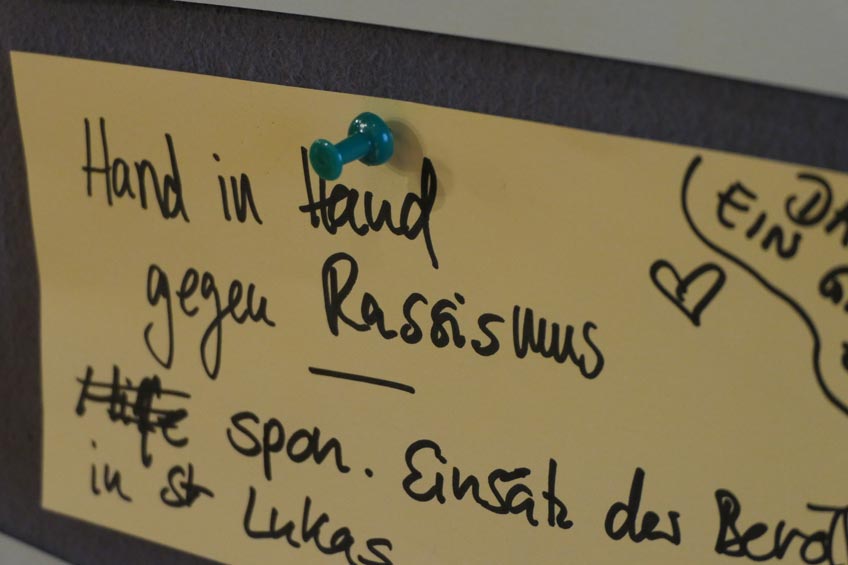 Hand in Hand
gegen Rassismus
spon. Einsatz der
in St
Lukas
EIN